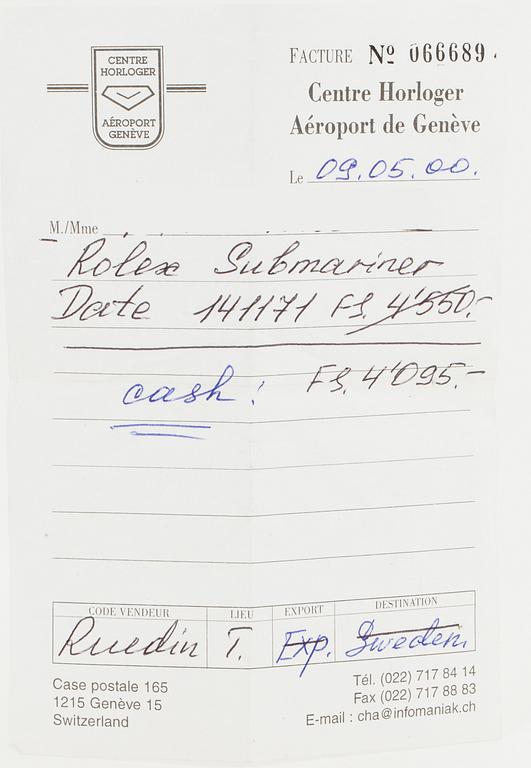 CENTRE
HORLOGER
AÉROPORT
GENÈVE
FACTURE Nº 066689
Centre Horloger
Aéroport de Genève
Le 09.05.00.
M./Mme
Rolex Submariner
Date 141171 FS. 4'550.-
cash! FS. 4'095.-
CODE VENDEUR LIEU EXPORT DESTINATION
Ruedin T. Exp. Sweden
Case postale 165
1215 Genève 15
Switzerland
Tél. (022) 717 84 14
Fax (022) 717 88 83
E-mail : cha@infomaniak.ch